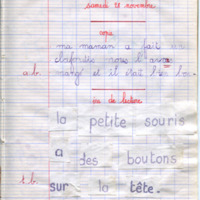 samedi 28 novembre
ma maman a fait un
clafoutis nous l'avon
a.b. mangé et il était bon
vie de lecture
la petite souris
a des boutons
t.b. sur la tête.